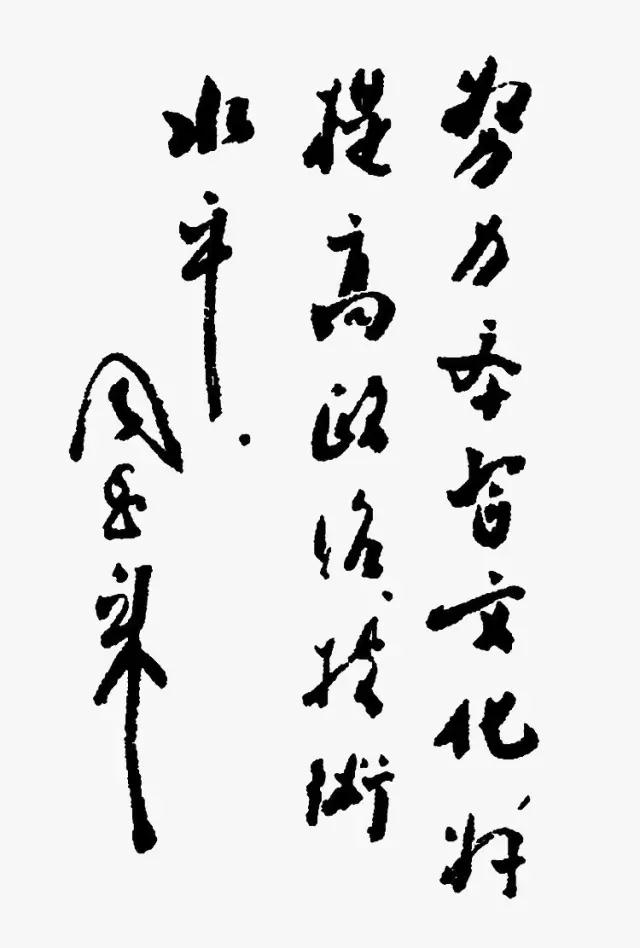 努力学習文化、
提高政治、技術
水平.
周恩来